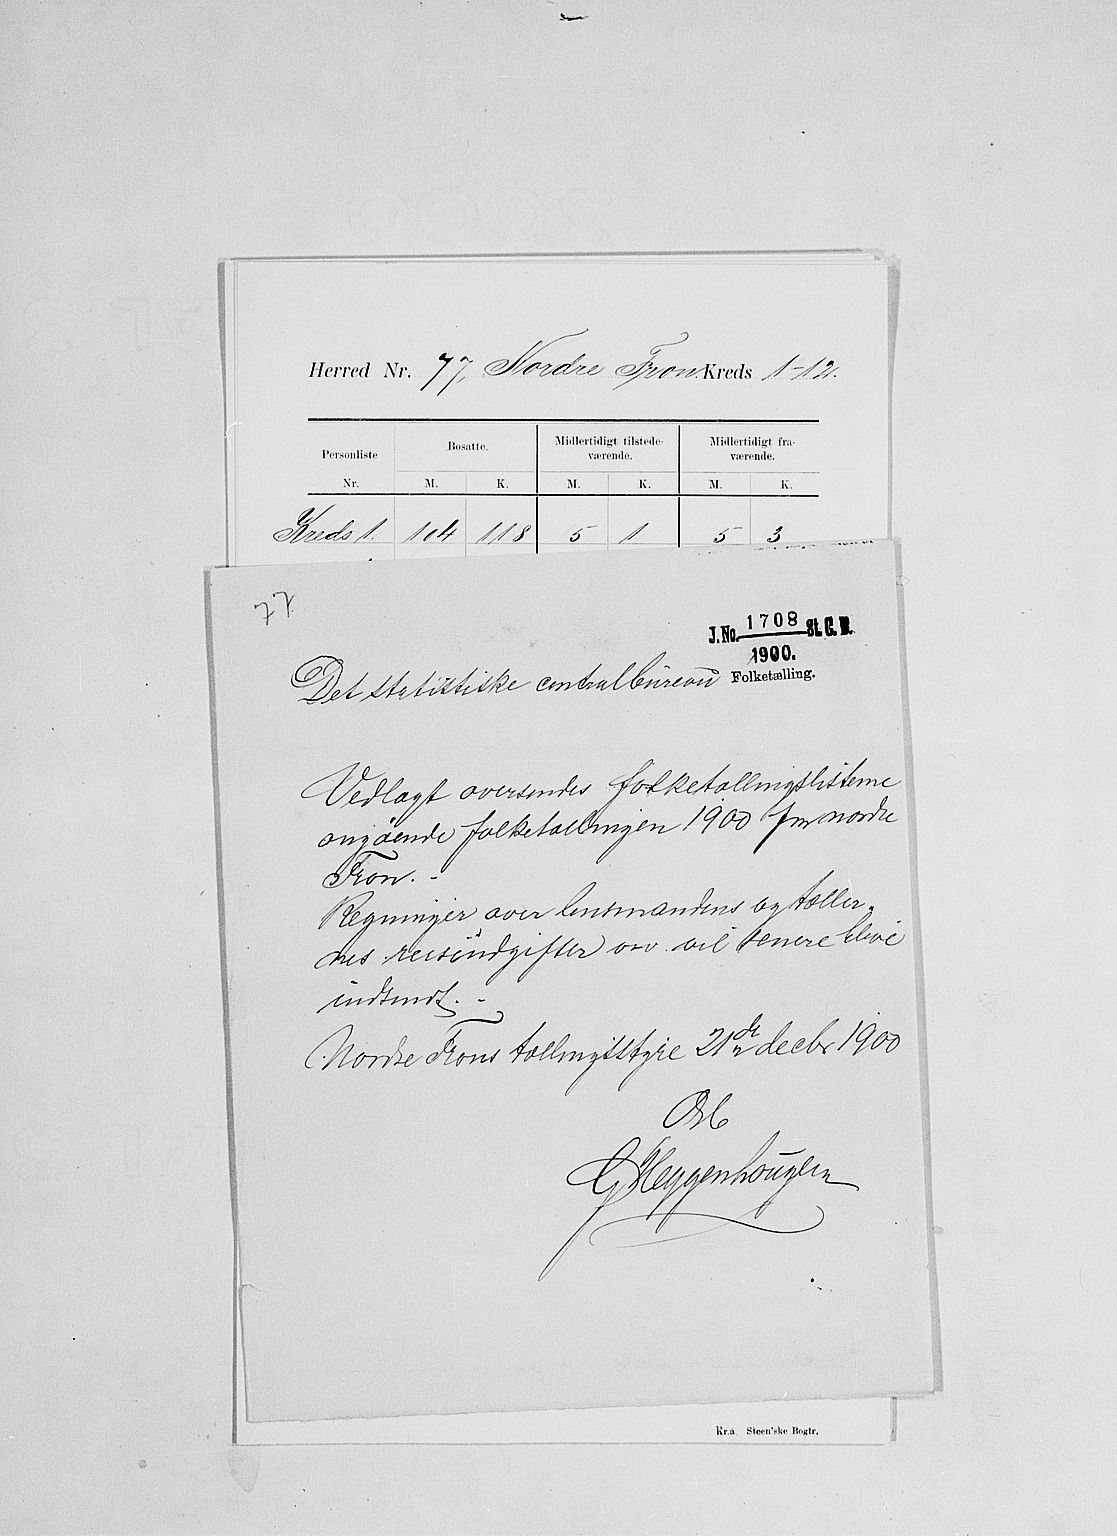 Herred Nr. 77, Nordre Fron Kreds 1-12.
Personliste Bosatte. Midlertidigt tilstede- Midlertidigt fra-
værende. værende.
Nr. M. K. M. K. M. K.
Kreds 1. 104 118 5 1 5 3
77.
J.No. 1708 St. C. B.
1900.
Folketælling.
Det statistiske centralbureau
Vedlagt oversendes folketællingslisterne
angående folketællingen 1900 for nordre
Fron. -
Regninger over lensmandens og tæller-
nes reiseudgifter vil senere blive
indsendt. -
Nordre Frons tællingsstyre 21de decbr 1900
G Heggenhougen
Kr.a Steen'ske Bogtr.